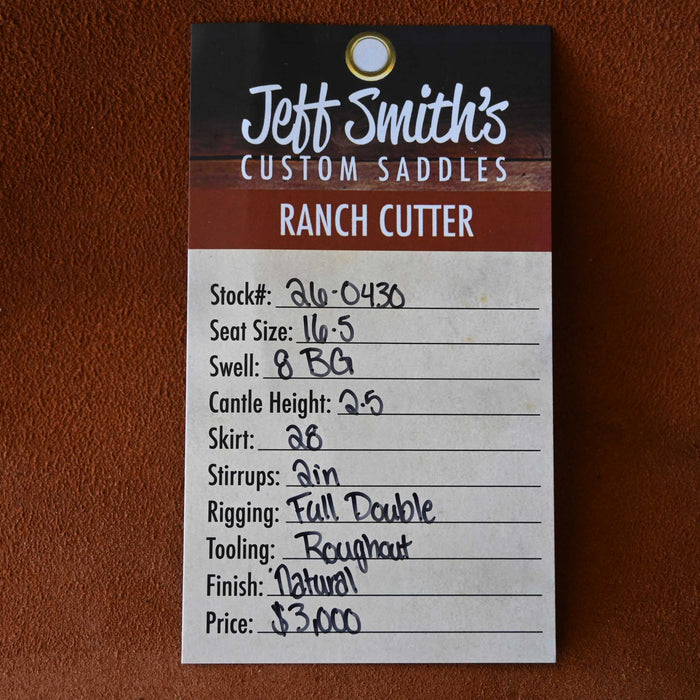 Jeff Smith's
CUSTOM SADDLES
RANCH CUTTER
Stock#: 26-0430
Seat Size: 16.5
Swell: 8 BG
Cantle Height: 2.5
Skirt: 28
Stirrups: 2in
Rigging: Full Double
Tooling: Roughout
Finish: Natural
Price: $3,000